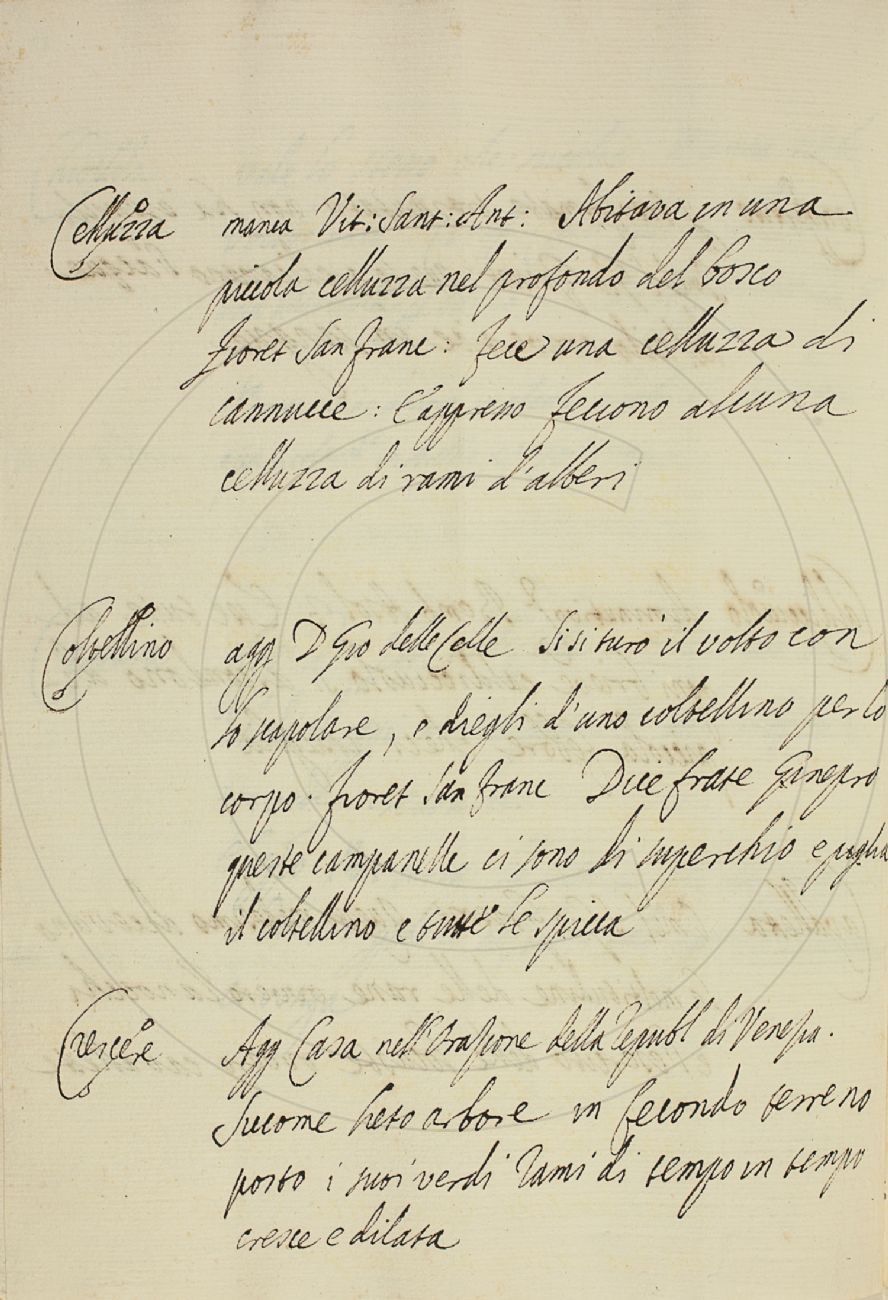 Celluzza manca Vit: Sant: Ant: Abitava in una
piccola celluzza nel profondo del bosco
Fioret San Franc: Fece una celluzza di
cannucce: E appresso feciono alcuna
celluzza di rami d'alberi
Coltellino agg D Gio delle Celle Si si turò il volto con
lo scapolare, e diegli d'uno coltellino per lo
corpo. Fioret San Franc Dice frate Ginepro
queste campanelle ci sono di superchio e piglia
il coltellino e tutte le spicca
Crescere Agg Casa nell'Orazione della Republ di Venezia.
Siccome lieto arbore in fecondo terreno
posto i suoi verdi rami di tempo in tempo
cresce e dilata